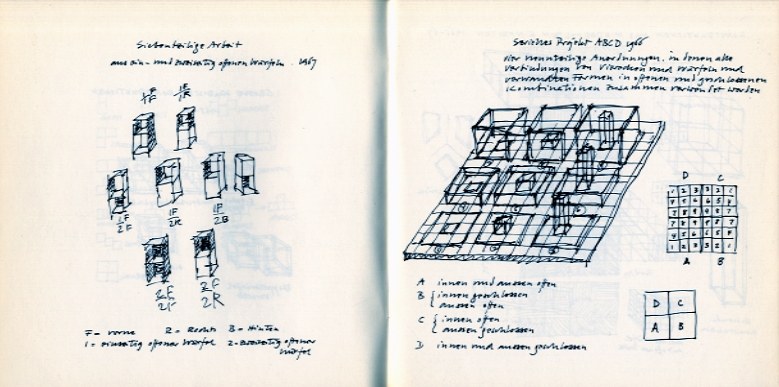 Siebenteilige Arbeit
aus ein- und zweiseitig offenen Würfeln. 1967
1F
1R
1F
2F
1F
2R
1F
2B
2F
2F
2R
F = vorne R = Rechts B = Hinten
1 = einseitig offener Würfel 2 = zweiseitig offener
Würfel
Serielles Projekt ABCD 1966
vier neunteilige Anordnungen, in denen alle
Verbindungen von Vierecken und Würfeln und
verwandten Formen in offenen und geschlossenen
Kombinationen zusammen verwendet werden
D C
A B
D C
A B
A innen und aussen offen
B { innen geschlossen
aussen offen
C { innen offen
aussen geschlossen
D innen und aussen geschlossen